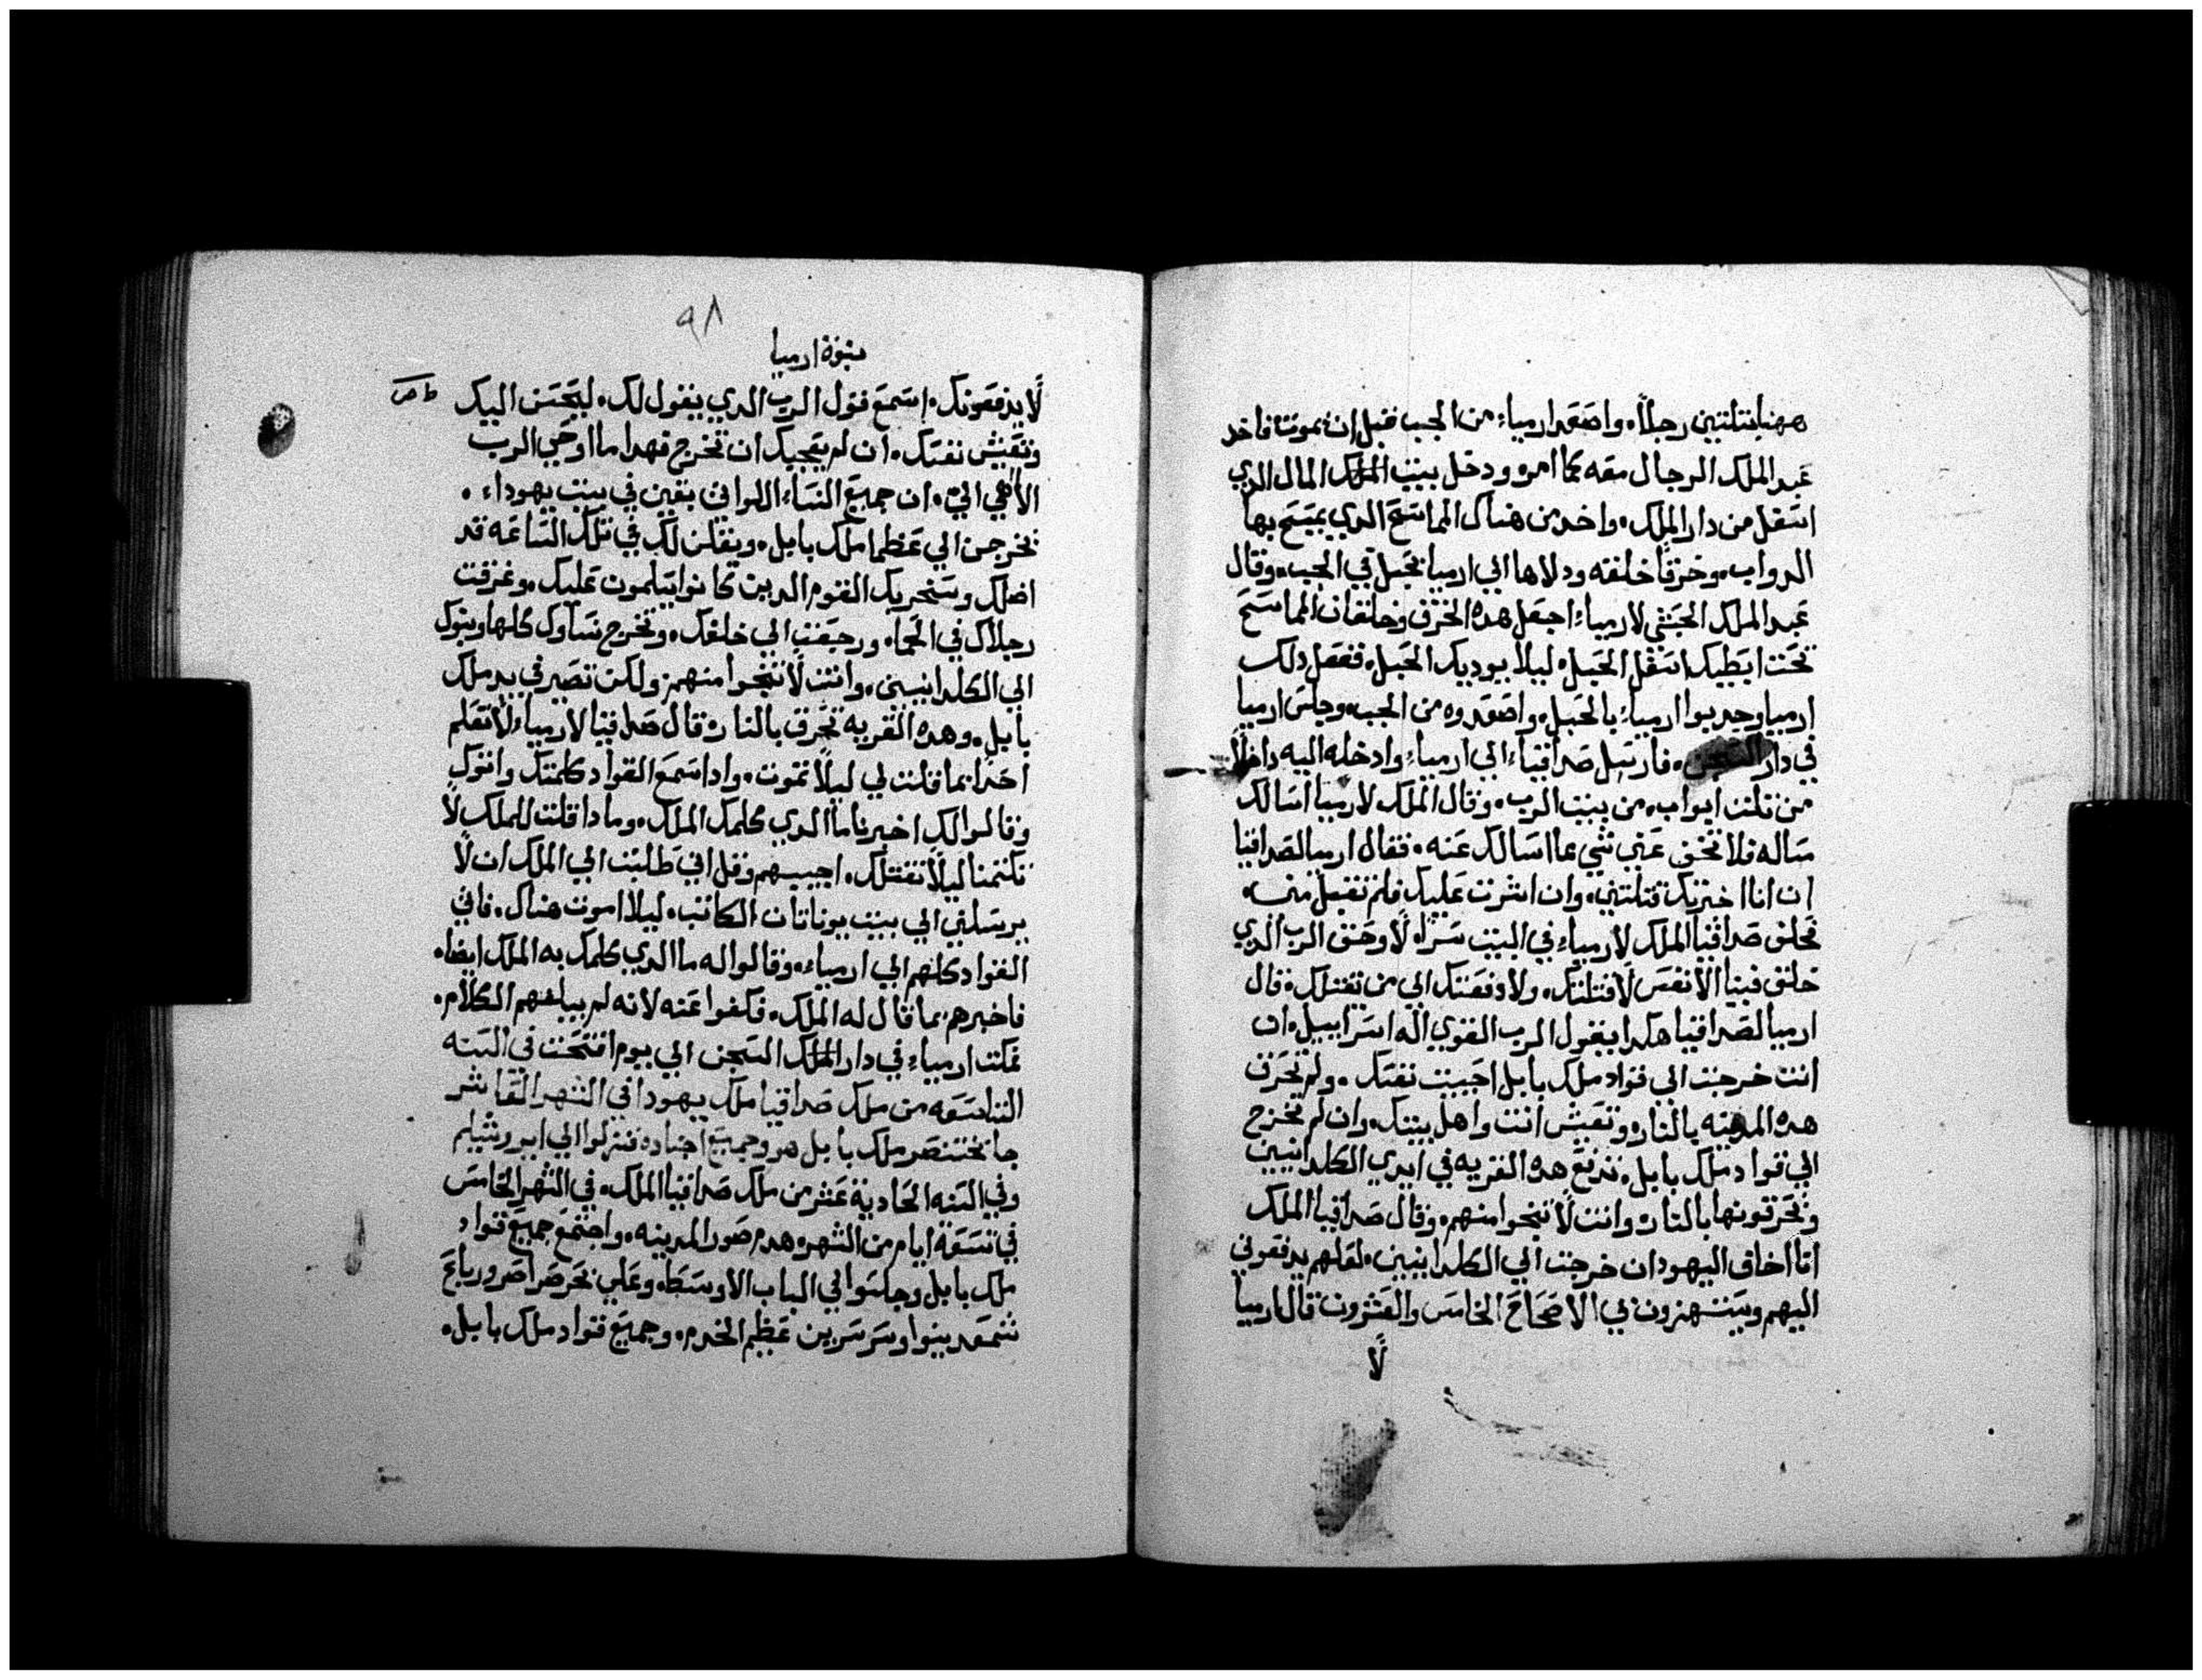 ههنا بتلتين رجلاً. واصعد ارمياء من الجب قبل ان يموت فاخد
عبد الملك الرجال معه كما امره ودخل بيت الملك المال الدي
اسفل من دار الملك. واخد من هناك المماسح الدي يمسح بها
الدواب. وخرقاً خلقه ودلاها الي ارميا بحبل في الجب. وقال
عبد الملك الحبشي لارمياء اجعل هده الخرق وخلقان المماسح
تحت ابطيك اسفل الحبل. ليلا يوديك الحبل. ففعل دلك
ارميا وجدبوا ارمياء بالحبل. واصعدوه من الجب. وجلس ارميا
في دار السجن. فارسل صداقياء الي ارمياء وادخله اليه داخلاً
من تلت ابواب. من بيت الرب. وقال الملك لارميا اسالك
مساله فلا تخفي عني شي مما اسالك عنه. فقال ارميا لصداقيا
ان انا اخبرتك قتلتني. وان اشرت عليك فلم تقبل مني.
فحلف صداقيا الملك لارمياء في البيت سراً. لا وحق الرب الدي
خلق فينا الانفس لا قتلتك. ولا دفعتك الي من يقتلك. قال
ارميا لصداقيا هكدا يقول الرب القوي اله اسراييل. ان
انت خرجت الي قواد ملك بابل احييت نفسك. ولم تحرق
هده المدينه بالنار. وتعيش انت واهل بيتك. وان لم تخرج
الي قواد ملك بابل. تدفع هده القريه في ايدي الكلدانيين
وتحرقونها بالنار. وانت لا تنجوا منهم. وقال صداقيا الملك
انا اخاف اليهود ان خرجت الي الكلدانيين. لعلهم يدفعوني
اليهم ويستهزون بي الاصحاح الخامس والعشرون قال ارميا
لا
٩٨
نبوة ارميا
لا يدفعونك. اسمع قول الرب الدي يقول لك. ليحسن اليك
وتعيش نفسك. ان لم يعجبك ان تخرج فهدا ما اوحي الرب
الاهي الي. ان جميع النساء اللواتي بقين في بيت يهوداء.
تخرجن الي عظما ملك بابل. ويقلن لك في تلك الساعه قد
اضلك وسنحربك القوم الدين كانوا يسلمون عليك. وغرقت
رجلاك في الحماه ورجعت الي خلفك. وتخرج نساوك كلها وبنوك
الي الكلدانيين. وانت لا تنجوا منهم ولكن تصير في يد ملك
بابل. وهده القريه تحرق بالنار قال صداقيا لارمياء لا تعلم
احدا بما قلت لي ليلاً تموت. وادا سمع القواد كلمتك واتوك
وقالوا لك اخبرنا ما الدي كلمك الملك. وما دا قلت للملك لا
تكتمنا ليلاً نقتلك. اجيبهم وقل اني طلبت الي الملك ان لا
يرسلني الي بيت يوناتان الكاتب. ليلا اموت هناك. فاتي
القواد كلهم الي ارمياء. وقالوا له ما الدي كلمك به الملك ايضا.
فاخبرهم بما قال له الملك. فكفوا عنه لانه لم يبلغهم الكلام.
فمكت ارمياء في دار الملك السجن الي يوم افتتحت في السنه
التاسعه من ملك صداقيا ملك يهودا في الشهر العاشر
جا بختنصر ملك بابل هو وجميع اجناده فنزلوا الي ايروشليم
وفي السنه الحادية عشر من ملك صداقيا الملك. في الشهر الخامس
في تسعة ايام من الشهر. هدم صور المدينه. واجتمع جميع قواد
ملك بابل وجلسوا في الباب الاوسط. وعلي
عظيم الخدم. وجميع قواد ملك بابل.